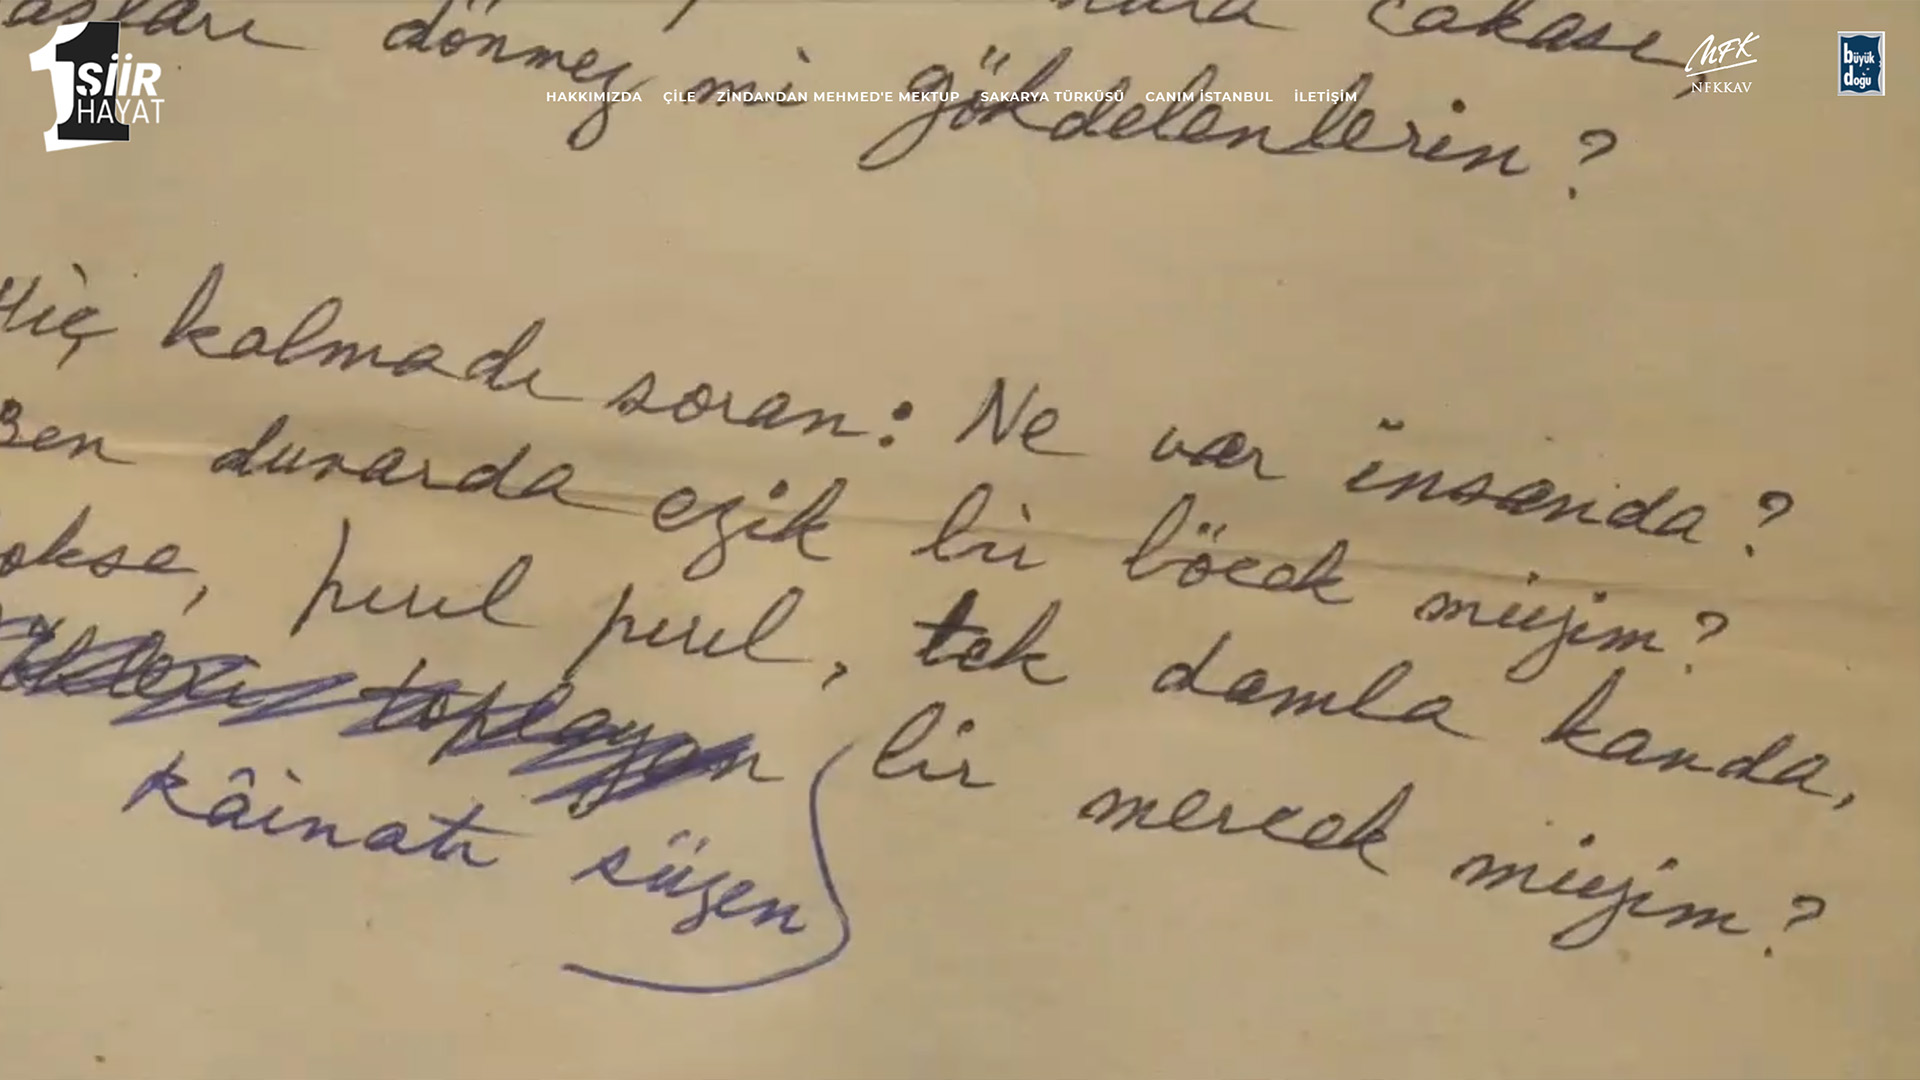 1
ŞİİR
HAYAT
HAKKIMIZDA ÇİLE ZİNDANDAN MEHMED'E MEKTUP SAKARYA TÜRKÜSÜ CANIM İSTANBUL İLETİŞİM
NFK
NFKKAV
büyük
doğu
cakası,
dönmez mi gökdelenlerin?
Hiç kalmadı soran: Ne var insanda?
Ben duvarda ezik bir böcek miyim?
okse, pırıl pırıl, tek damla kanda,
toplayan bir mercek miyim?
kâinatı süzen